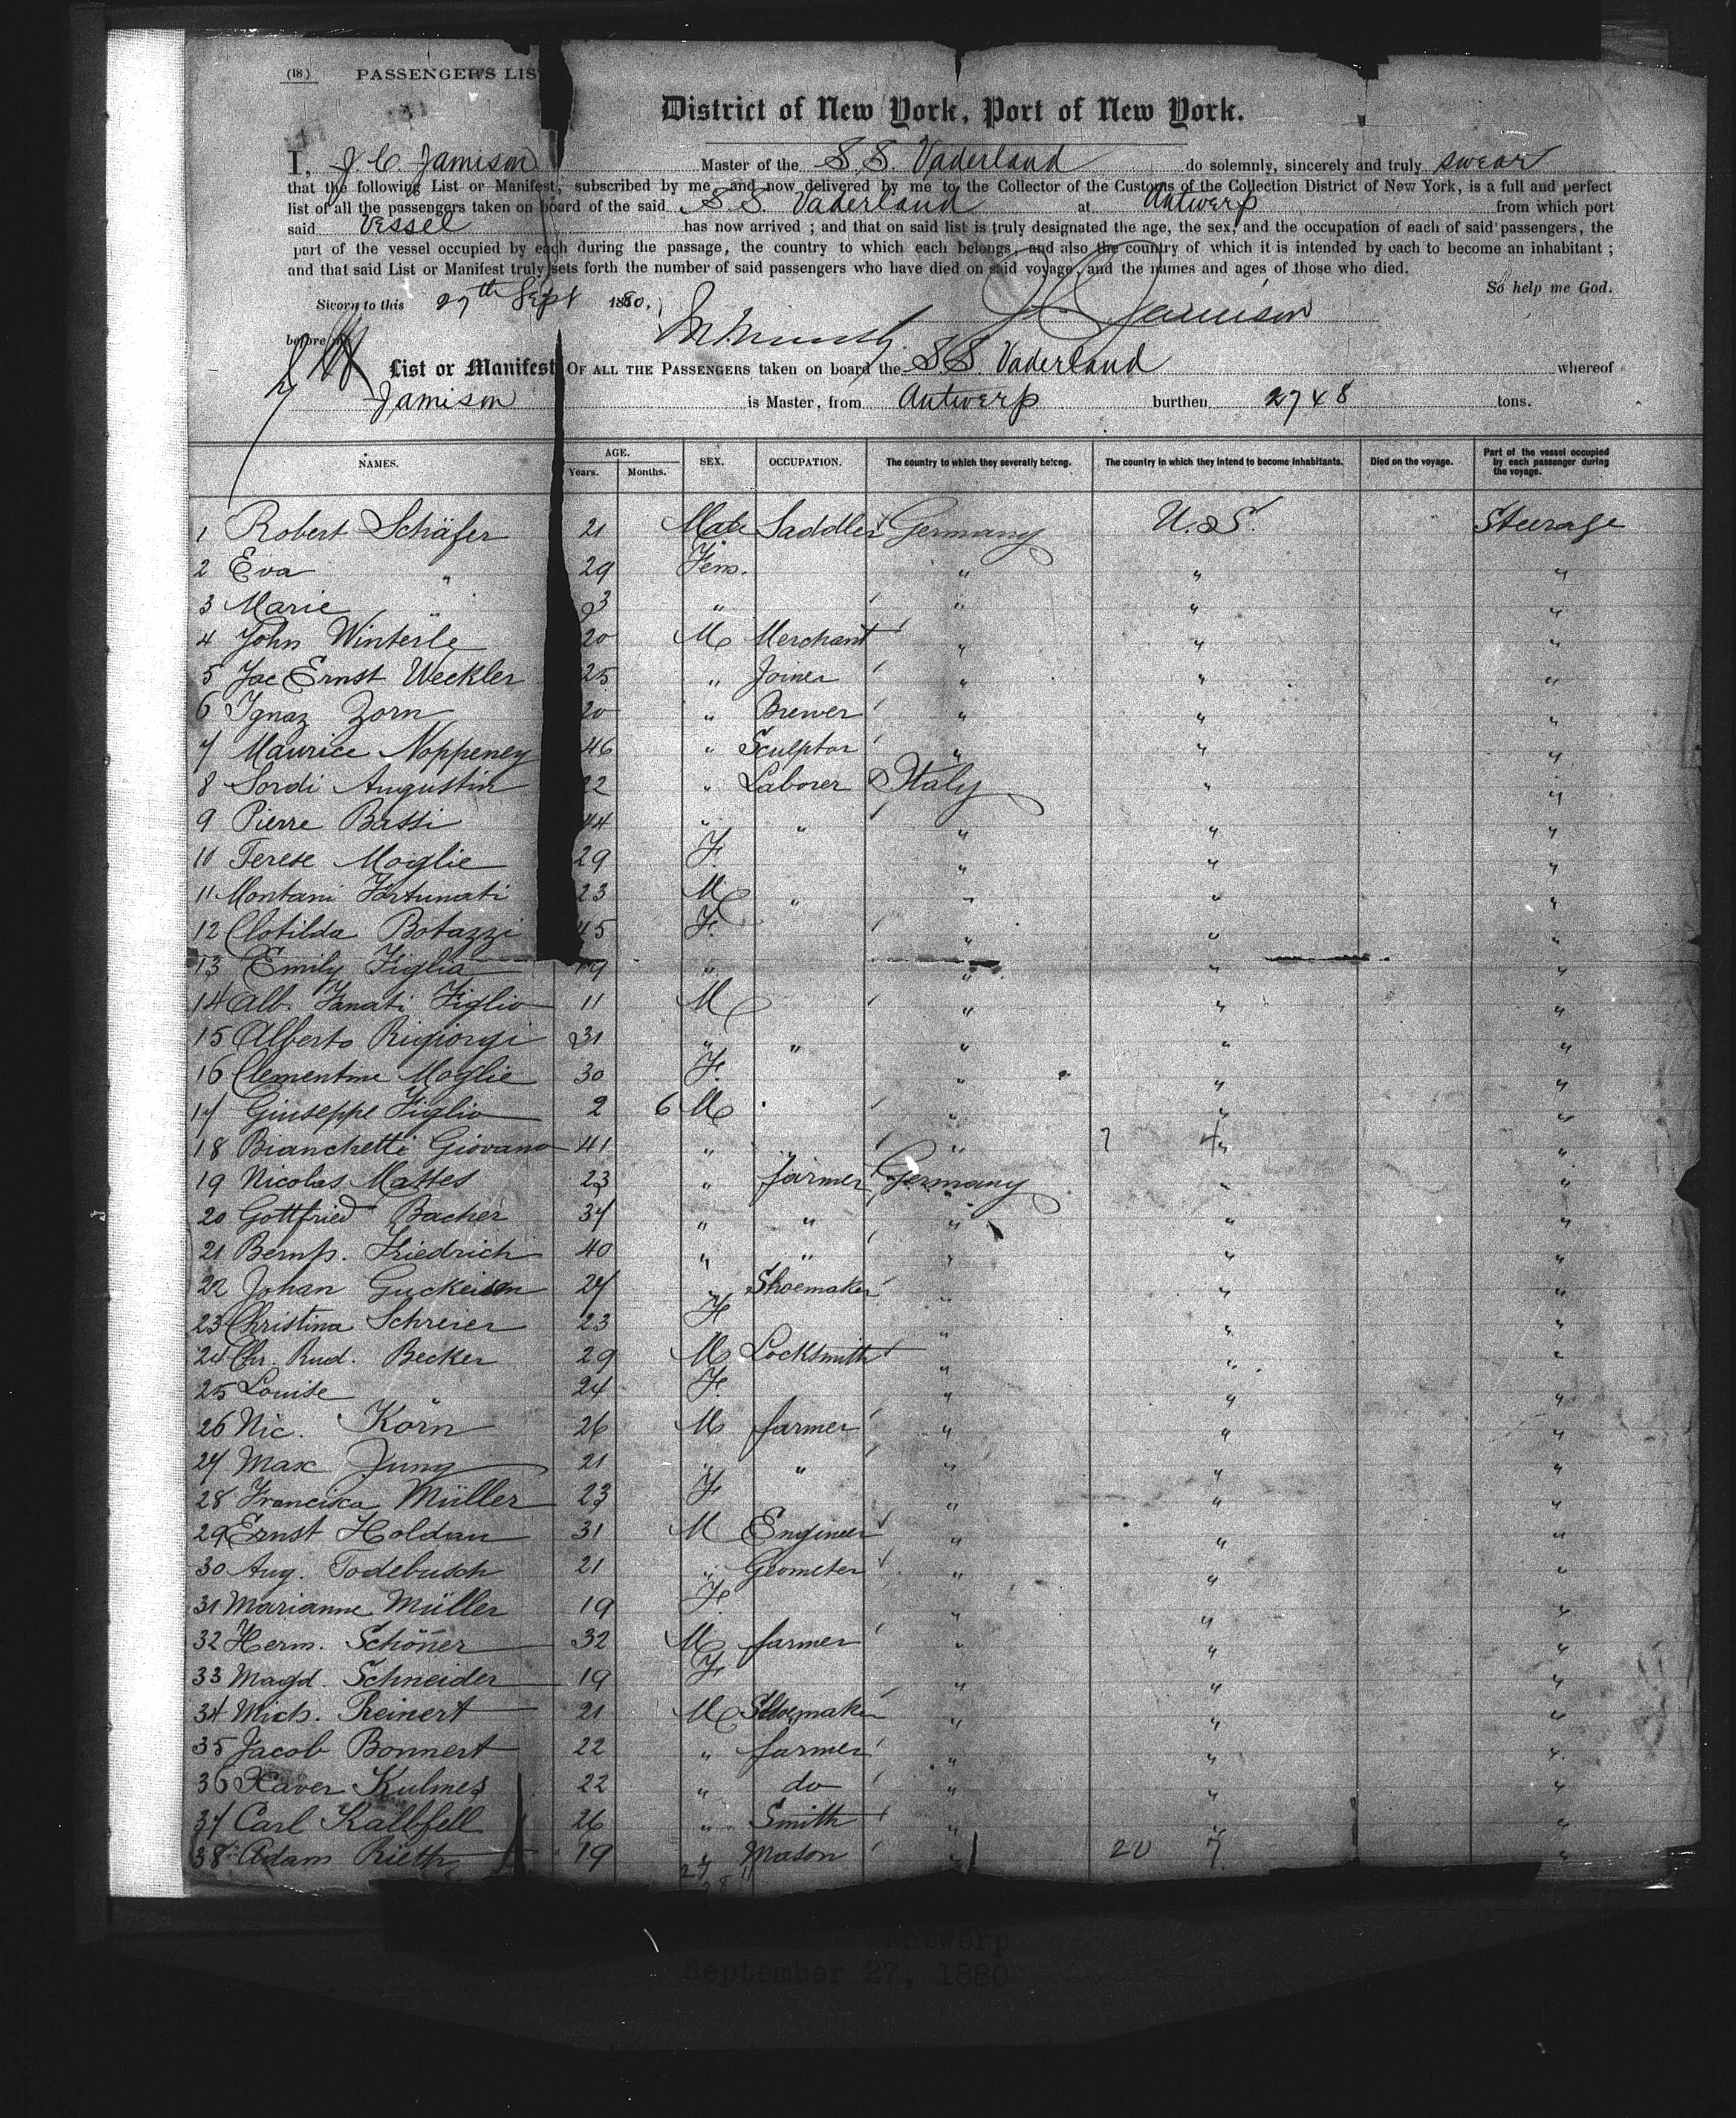 (18) PASSENGER'S LIS
District of New York, Port of New York.
I, J. C. Jamison Master of the S.S. Vaderland do solemnly, sincerely and truly swear
that the following List or Manifest, subscribed by me, and now delivered by me to the Collector of the Customs of the Collection District of New York, is a full and perfect
list of all the passengers taken on board of the said S.S. Vaderland at Antwerp from which port
said Vessel has now arrived ; and that on said list is truly designated the age, the sex, and the occupation of each of said passengers, the
part of the vessel occupied by each during the passage, the country to which each belongs, and also the country of which it is intended by each to become an inhabitant ;
and that said List or Manifest truly sets forth the number of said passengers who have died on said voyage, and the names and ages of those who died.
So help me God.
Sworn to this 27th Sept 1880, J C Jamison
before me
List or Manifest OF ALL THE PASSENGERS taken on board the S.S. Vaderland whereof
Jamison is Master, from Antwerp burthen 2748 tons.
NAMES. AGE. Years. Months. SEX. OCCUPATION. The country to which they severally belong. The country in which they intend to become inhabitants. Died on the voyage. Part of the vessel occupied by each passenger during the voyage.
1 Robert Schäfer 21 Male Saddler Germany U.S. Steerage
2 Eva " 29 Fem. " " "
3 Marie " 3 " " " "
4 John Winterle 20 M Merchant " " "
5 Jac Ernst Weckler 25 " Joiner " " "
6 Ignaz Zorn 20 " Brewer " " "
7 Maurice Noppeney 46 " Sculptor " " "
8 Sordi Augustin 22 " Laborer Italy " "
9 Pierre Bassi 44 " " " " "
10 Terese Moiglie 29 F. " " "
11 Montani Fortunati 23 M " " " "
12 Clotilda Botazzi 45 F. " " "
13 Emily Figlia 19 " " " "
14 Alb. Fanati Figlio 11 M " " "
15 Alberto Rigiorgi 31 " " " " "
16 Clementine Moglie 30 F. " " "
17 Giuseppe Figlio 2 6 M " " "
18 Bianchetti Giovano 41 " " " " "
19 Nicolas Mattes 23 " farmer Germany " "
20 Gottfried Bacher 34 " " " " "
21 Bernh. Friedrich 40 " " " " "
22 Johan Guckeisen 27 " Shoemaker " " "
23 Christina Schreier 23 F " " "
24 Chr. Rud. Becker 29 M Locksmith " " "
25 Louise " 24 F. " " "
26 Nic. Korn 26 M farmer " " "
27 Max Jung 21 " " " " "
28 Francisca Müller 23 F " " "
29 Ernst Holdau 31 M Engineer " " "
30 Aug. Todebusch 21 " Geometer " " "
31 Marianne Müller 19 F. " " "
32 Herm. Schöner 32 M farmer " " "
33 Magd. Schneider 19 F " " "
34 Mich. Reinert 21 M Shoemaker " " "
35 Jacob Bonnert 22 " farmer " " "
36 Xaver Kulmes 22 " do " " "
37 Carl Kalbfell 26 " Smith " " "
38 Adam Rieth 19 " Mason " 20 7 "
27 11
Antwerp
September 27, 1880